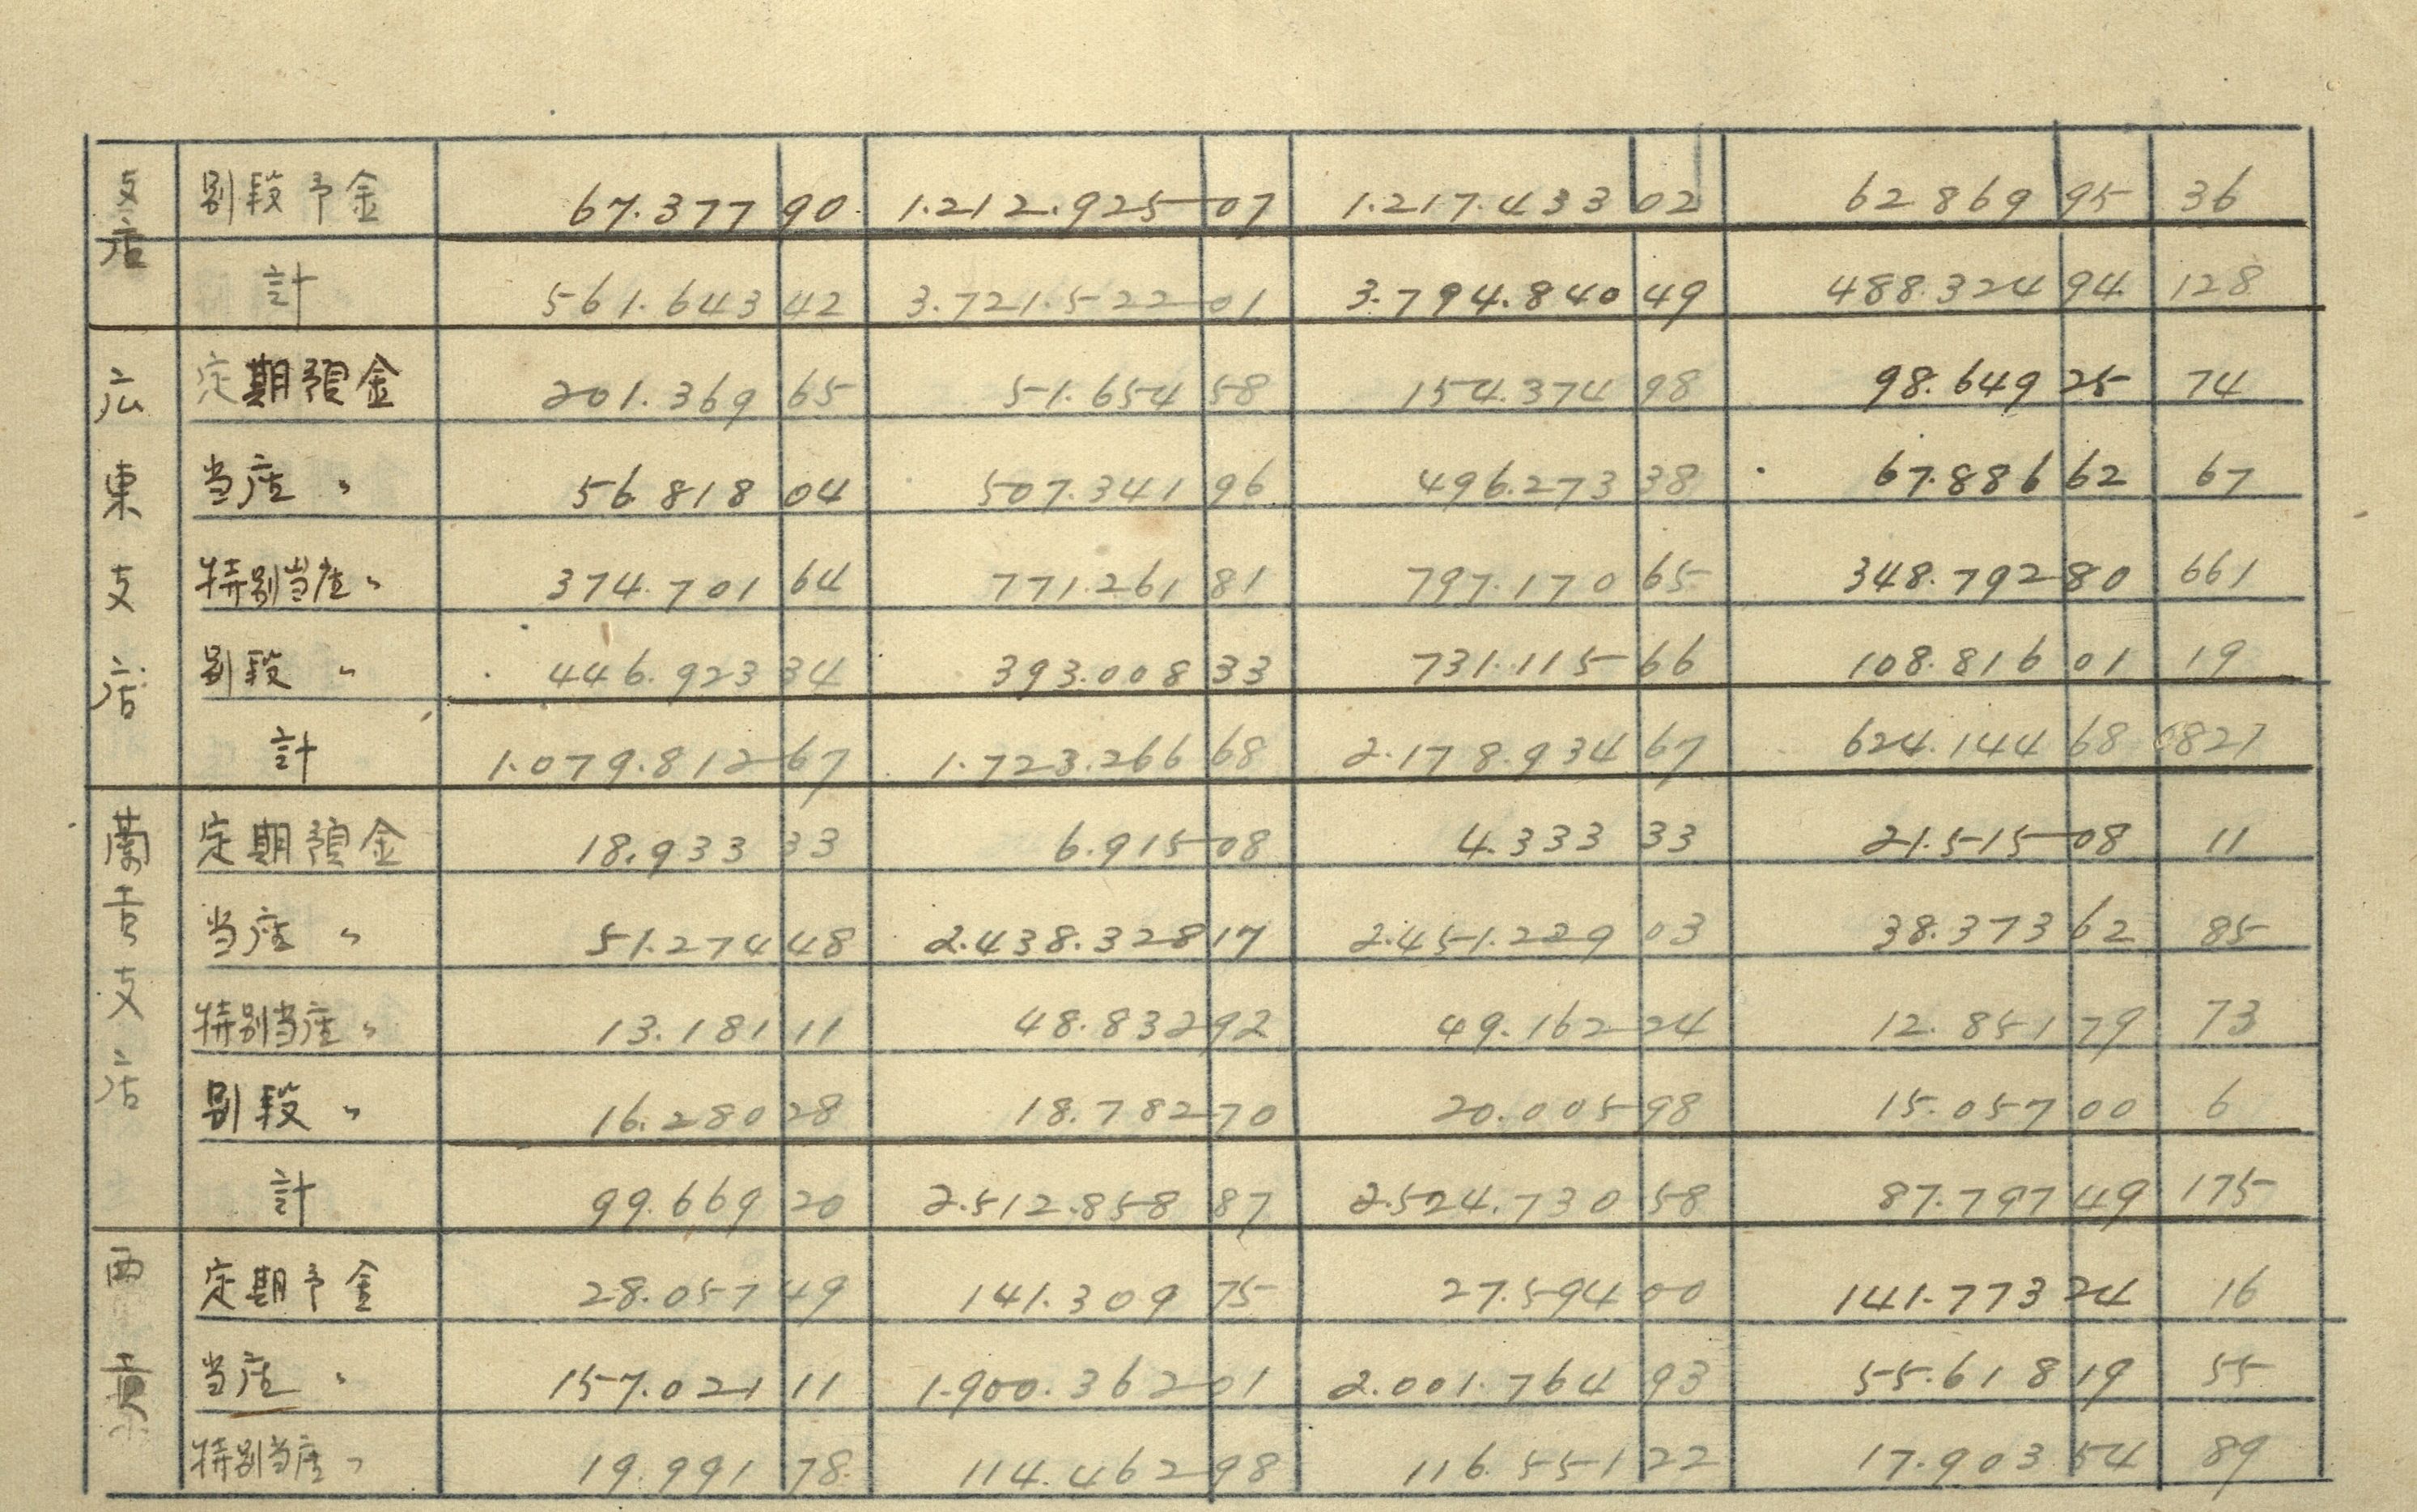 支店 別段予金 67.377 90 1.212.925 07 1.217.433 02 62869 95 36
計 561.643 42 3.721.522 01 3.794.840 49 488.324 94 128
広東支店 定期預金 201.369 65 51.654 58 154.374 98 98.649 25 74
当座 〃 56.818 04 507.341 96 496.273 38 67.886 62 67
特別当座〃 374.701 64 771.261 81 797.170 65 348.792 80 661
別段 〃 446.923 34 393.008 33 731.115 66 108.816 01 19
計 1.079.812 67 1.723.266 68 2.178.934 67 624.144 68 821
蘭貢支店 定期預金 18.933 33 6.915 08 4.333 33 21.515 08 11
当座 〃 51.274 48 2.438.328 17 2.451.229 03 38.373 62 85
特別当座〃 13.181 11 48.832 92 49.162 24 12.851 79 73
別段 〃 16.280 28 18.782 70 20.005 98 15.057 00 6
計 99.669 20 2.512.858 87 2.524.730 58 87.797 49 175
西貢 定期予金 28.057 49 141.309 75 27.594 00 141.773 24 16
当座 〃 157.021 11 1.900.362 01 2.001.764 93 55.618 19 55
特別当座〃 19.991 78 114.462 98 116.551 22 17.903 54 89